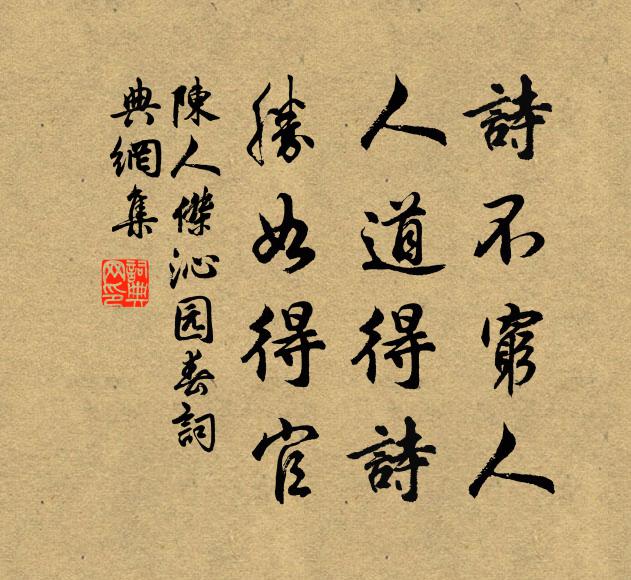 詩不窮人
人道得詩
勝如得官
陳人傑沁园春詞
典網集
詞典网印